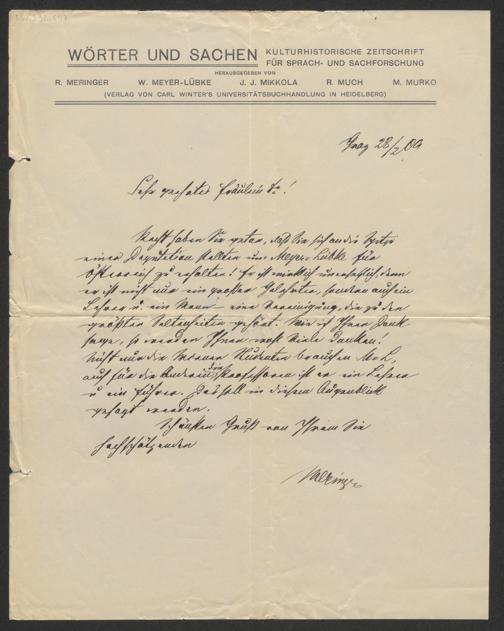 WÖRTER UND SACHEN
KULTURHISTORISCHE ZEITSCHRIFT
FÜR SPRACH- UND SACHFORSCHUNG
HERAUSGEGEBEN VON
R. MERINGER W. MEYER-LÜBKE J. J. MIKKOLA R. MUCH M. MURKO
(VERLAG VON CARL WINTER'S UNIVERSITÄTSBUCHHANDLUNG IN HEIDELBERG)
Graz 28/2 09
Sehr geehrtes Fräulein Dr!
Recht haben Sie getan, daß Sie sich an die Spitze
einer Deputation stellten um Meyer-Lübke für
Österreich zu erhalten! Er ist wirklich unersetzlich, denn
er ist nicht nur ein großer Gelehrter, sondern auch ein
Lehrer u. ein Mensch – eine Vereinigung, die zu den
größten Seltenheiten gehört. Wenn ich Ihnen Dank
sage, so werden Ihnen noch viele danken!
Nicht nur die Wiener Studenten brauchen M-L,
auch für die anderen Professoren ist er ein Lehrer
u ein Führer. Das soll in diesem Augenblick
gesagt werden.
Schönsten Gruß von Ihrem Sie
hochschätzenden
Meringer